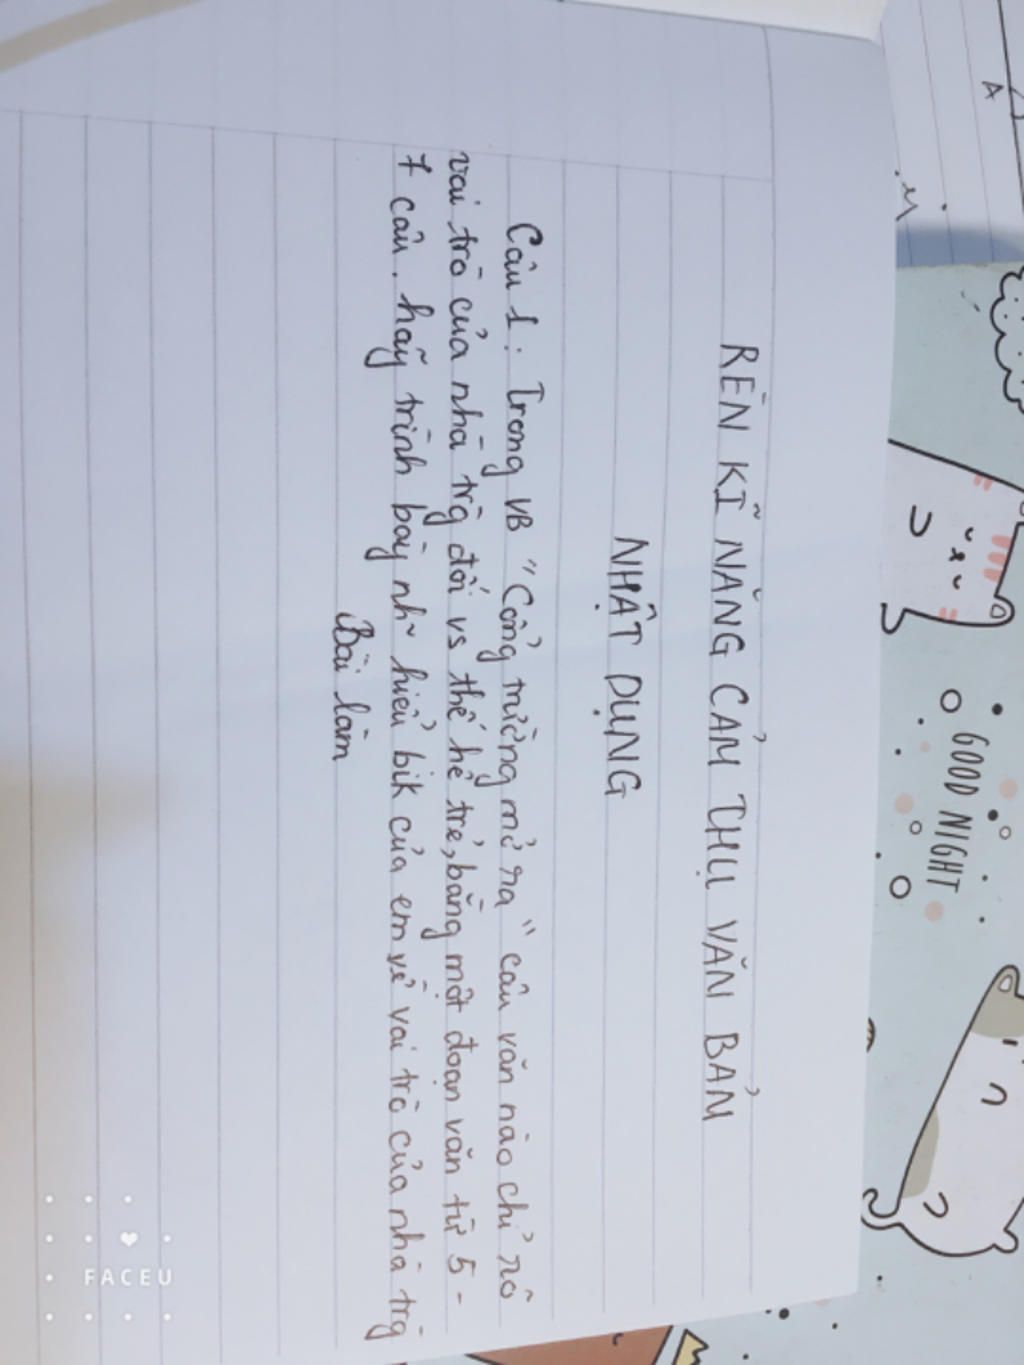 RÈN KĨ NĂNG CẢM THỤ VĂN BẢN
NHẬT DỤNG
Câu 1: Trong VB "Cổng trường mở ra" câu văn nào chỉ rõ
vai trò của nhà trg đối vs thế hệ trẻ, bằng một đoạn văn từ 5-
7 câu. hãy trình bày nh~ hiểu bik của em về vai trò của nhà trg
Bài làm
GOOD NIGHT
A
FACEU